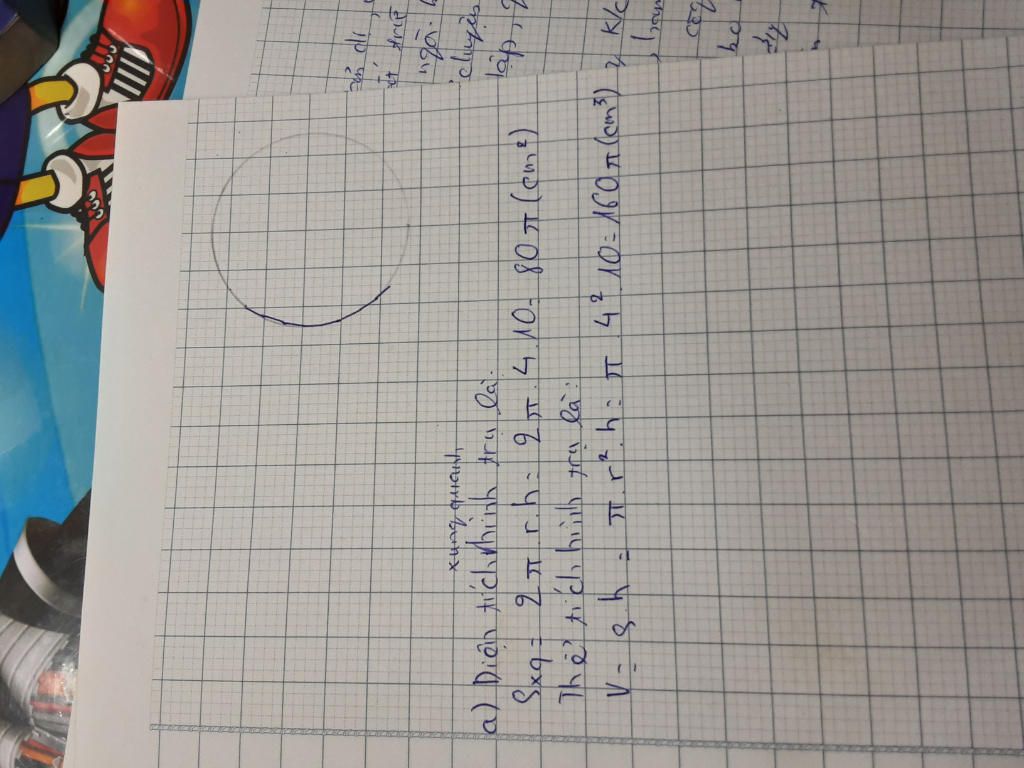 a) Diện tích xung quanh hình trụ là:
Sxq = 2π.r.h = 2π.4.10 = 80π (cm²)
Thể tích hình trụ là:
V = S.h = π.r².h = π.4².10 = 160π (cm³)